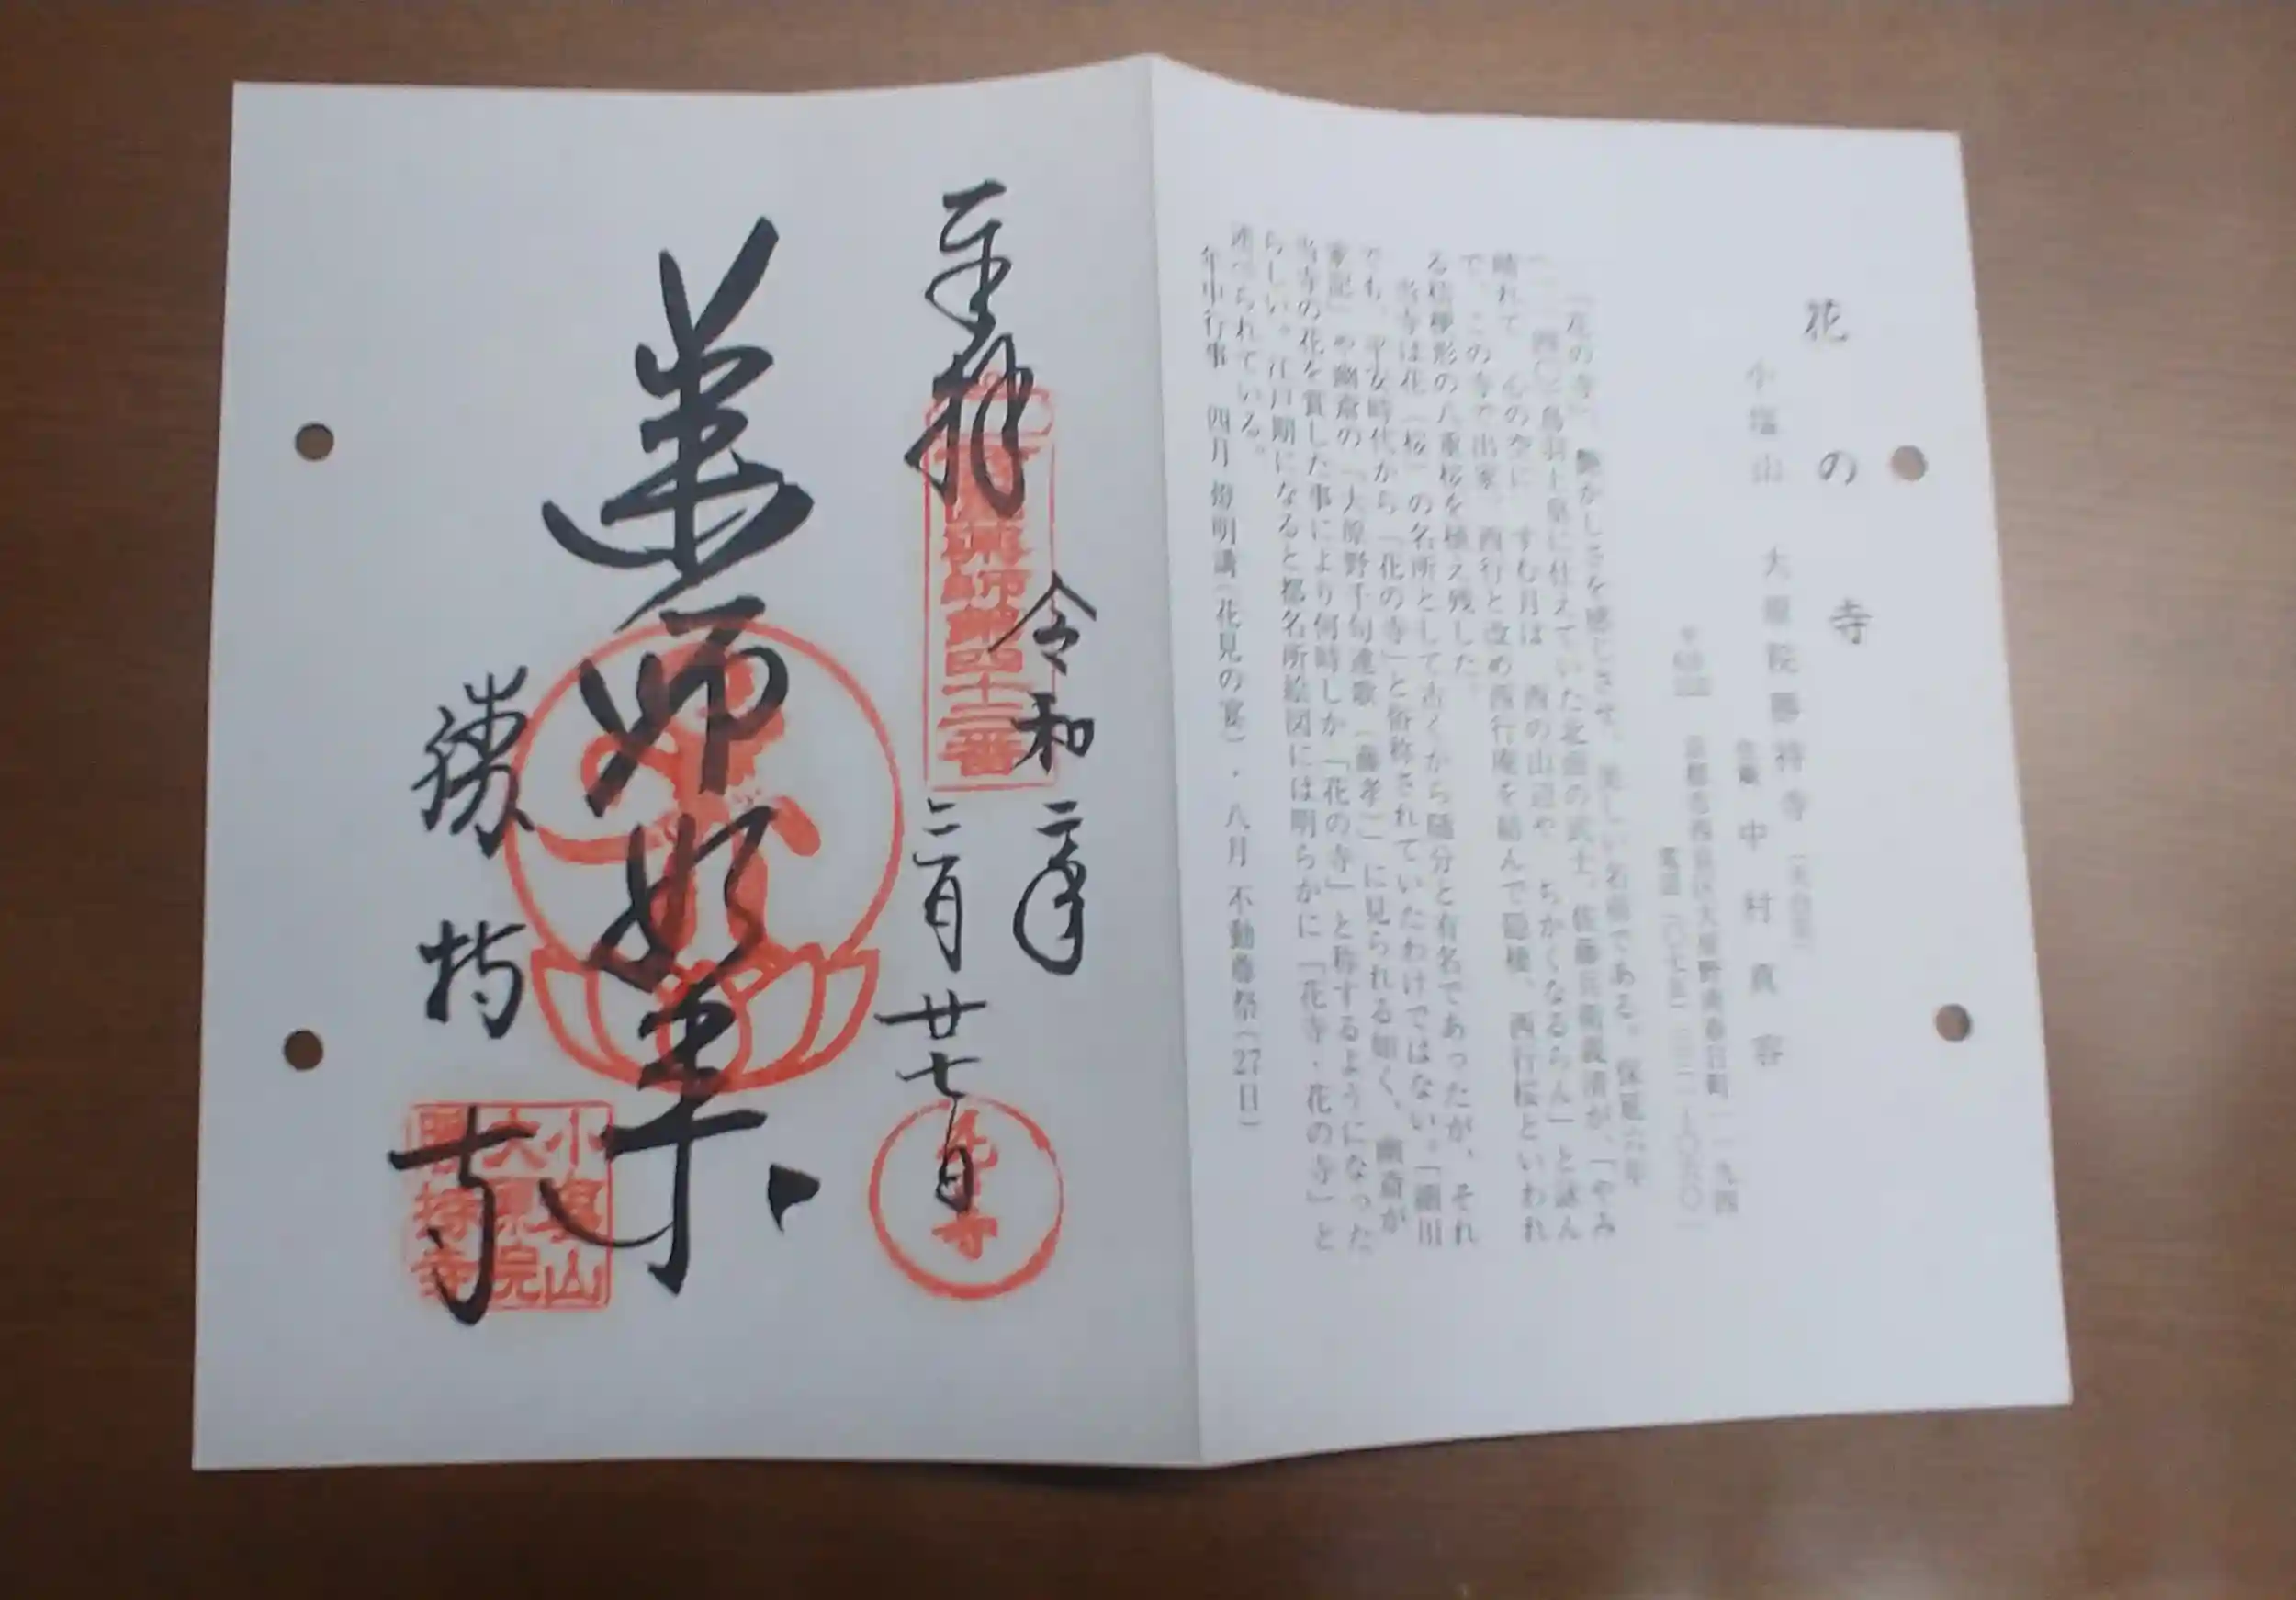 花の寺
小塩山 大原院勝持寺 (天台宗)
住職 中村真容
京都市西京区大原野南春日町一一九四
「花の寺」、艶かしさを感じさせ、美しい名前である。保延六年
(一一四〇)鳥羽上皇に仕えていた北面の武士、佐藤兵衛義清が、「やみ
晴れて 心の空に すむ月は 西の山辺や ちかくなるらん」と詠ん
で、この寺で出家、西行と改め西行庵を結んで隠棲、西行桜といわれ
る枝垂形の八重桜を植え残した。
当寺は花(桜)の名所として古くから随分と有名であったが、それ
でも、平安時代から「花の寺」と俗称されていたわけではない。「細川
家記」や幽斎の「大原野千句連歌(藤孝ニ)に見られる如く、幽斎が
当寺の花を賞した事により何時しか「花の寺」と称するようになった
らしい。江戸期になると都名所絵図には明らかに「花寺・花の寺」と
述べられている。
年中行事 四月 燈明講(花見の宴)・八月 不動尊祭(27日)
奉拝
薬師第四十二番
令和二年
三月廿七日
花の寺
薬師如来
勝持寺
小塩山
大原院
勝持寺